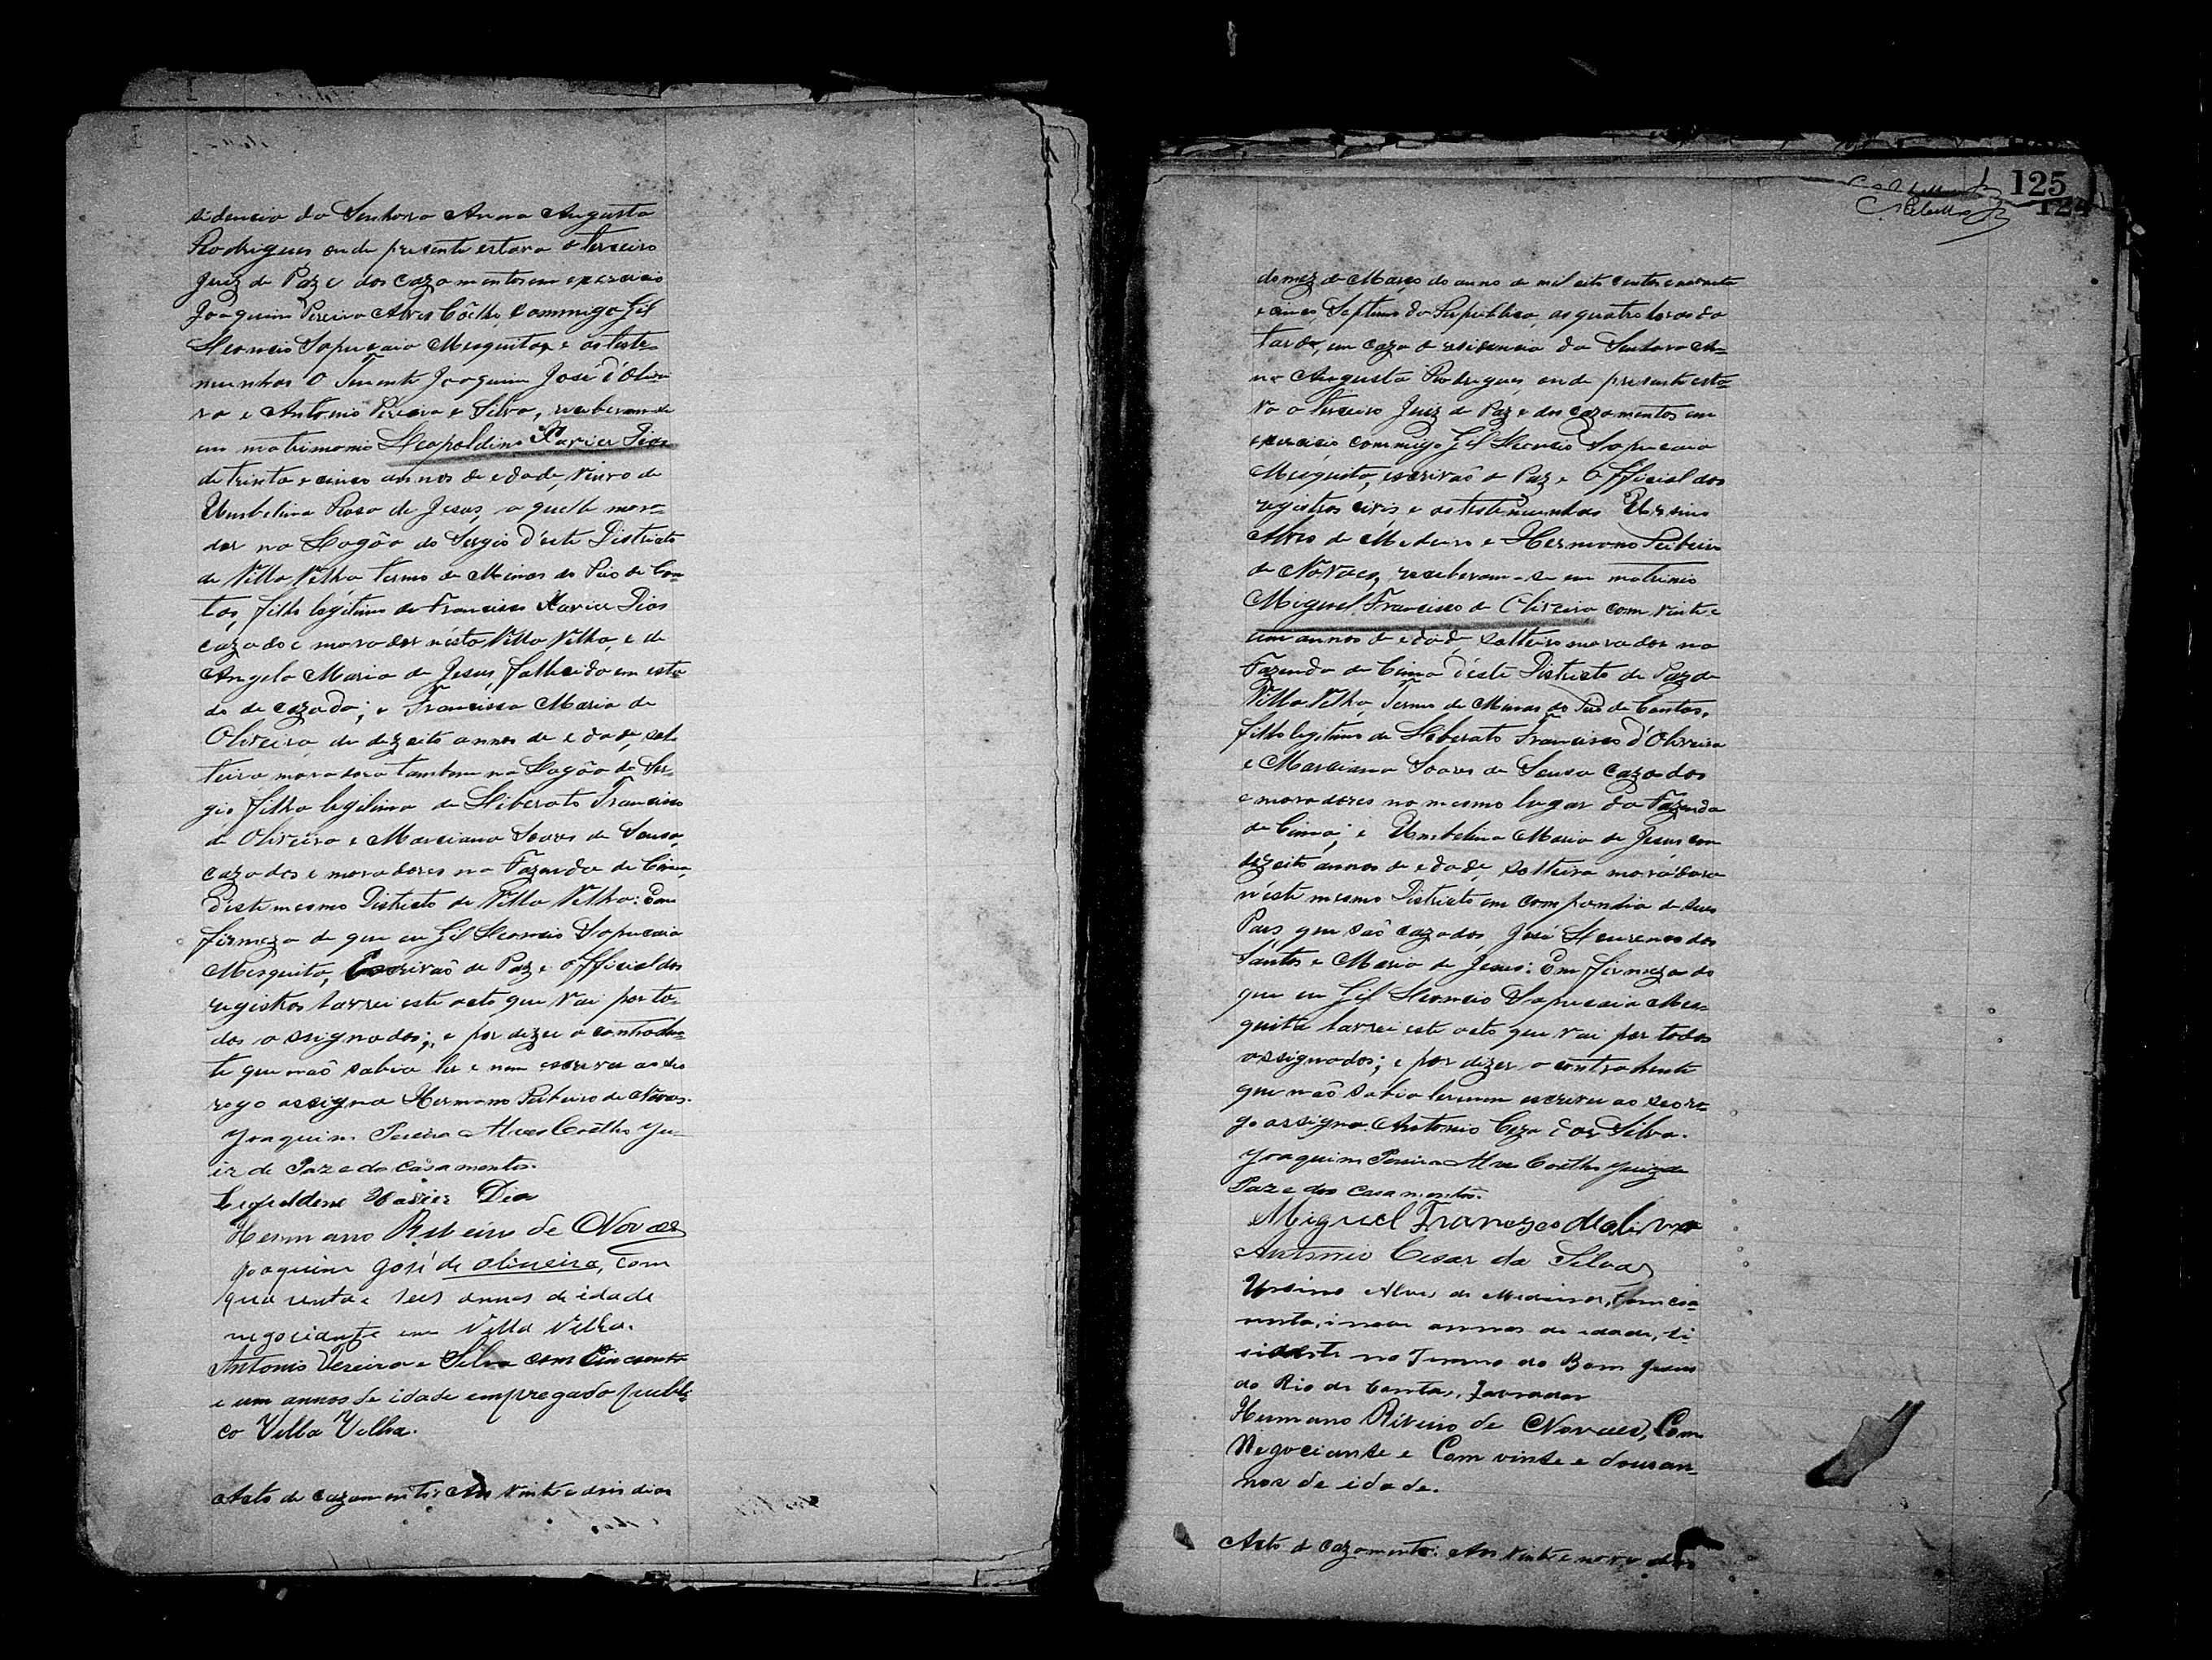 sidencia da Senhora Anna Augusta
Rodrigues onde presente estava o terceiro
Juiz de Paz e dos cazamentos em exercicio
Joaquim Pereira Alves Coêlho, commigo Gil
Leoncio Sapucaia Mesquita, e as teste-
munhas O Tenente Joaquim José d'Olivei-
ra e Antonio Pereira e Silva, receberam-se
em matrimonio Leopoldino Xavier Dias
de trinta e cinco annos de edade, viuvo de
Umbelina Rosa de Jesus, aquelle mora-
dor na Lagôa do Sergio d'este Districto
de Villa Velha Termo de Minas do Rio de Con-
tas, filho legitimo de Francisco Xavier Dias
cazado e morador nésta Villa Velha, e de
Angela Maria de Jesus, fallecida em esta-
do de cazada; e Francisca Maria de
Oliveira de dezoito annos de edade, sol-
teira moradora tambem na Lagôa do Ser-
gio filha legitima de Liberato Francisco
de Oliveira e Marciana Soares de Sousa,
cazados e moradores na Fazenda de Cima,
d'este mesmo Districto de Villa Velha: Em
firmeza do que eu Gil Leoncio Sapucaia
Mesquita, Escrivaõ de Paz e Official dos
registros lavrei este acto que vai por to-
dos assignados; e por dizer a contrahen-
te que naõ sabia ler e nem escrever ao seo
rogo assigna Hermano Ribeiro de Novaes.
Joaquim Pereira Alves Coêlho Ju-
iz de Paz e dos casamentos.
Leopoldino Xavier Dias
Hermano Ribeiro de Novaes
Joaquim José de Oliveira, com
quarenta e seis annos de idade
negociante em Villa Velha.
Antonio Pereira e Silva com Cincoenta
e um annos de idade empregado publi-
co Villa Velha.
Acto de cazamento: Aos vinte e dois dias
125
124
do mez de Março do anno de mil oito centos e noventa
e cinco, Septimo da Republica, as quatro horas da
tarde, em caza de residencia da Senhora An-
na Augusta Rodrigues, onde presente esta-
va o terceiro Juiz de Paz e dos cazamentos em
exercicio, commigo Gil Leoncio Sapucaia
Mesquita, escrivaõ de Paz e Official dos
registros civis e as testemunhas Ursino
Alves de Medeiros e Hermano Ribeiro
de Novaes, receberam-se em matrimio
Miguel Francisco de Oliveira com vinte e
um annos de edade, solteiro morador na
Fazenda de Cima d'éste Districto de Paz de
Villa Velha, Termo de Minas do Rio de Contas,
filho legitimo de Liberato Francisco d'Oliveira
e Marciana Soares de Sousa cazados
e moradores no mesmo lugar da Fazenda
de Cima; e Umbelina Maria de Jesus com
dezoito annos de edade, solteira moradora
n'éste mesmo Districto em companhia de seus
Pais que saõ cazados, José Lourenço dos
Santos e Maria de Jesus: Em firmeza do
que eu Gil Leoncio Sapucaia Mes-
quita lavrei este acto que vai por todos
assignados; e por dizer a contrahente
que naõ sabia ler e nem escrever ao seo ro-
go assigna Antonio Ceza da Silva.
Joaquim Pereira Alves Coêlho Juiz de
Paz e dos casamentos.
Miguel Francysco de olivra
Antonio Cesar da Silva
Ursino Alves de Medeiros, com coa-
renta, i nove annos de idade, re-
sidente no Termo do Bom Jesus
do Rio de Contas, Lavrador
Hermano Ribeiro de Novaes, Com
Negociante e Com vinte e dous an-
nos de idade.
Acto de cazamento: Aos vinte e nove dias